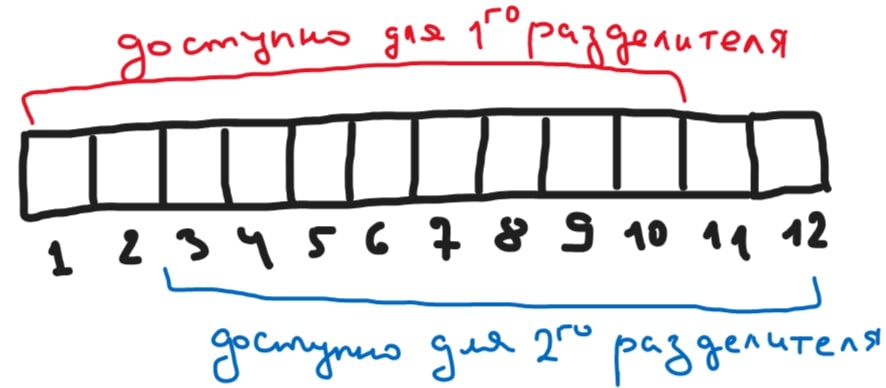 доступно для 1го разделителя
1 2 3 4 5 6 7 8 9 10 11 12
доступно для 2го разделителя